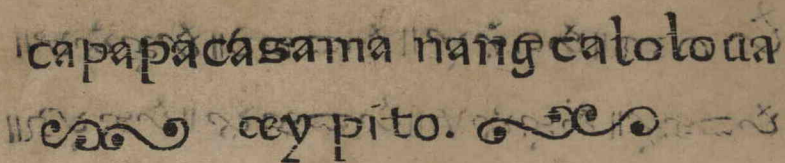 capapacasama nang caloloua
æy pito.